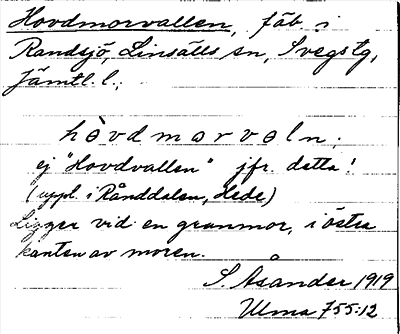 Hovdmorvallen, fäb i
Randsjö, Linsälls sn, Svegs tg,
Jämtl. l.;
hòvdmorvoln;
ej "Hovdvallen" jfr. detta!
(uppl. i Rånddalen, Hede)
Ligger vid en granmor, i östra
kanten av moren.
S. Åsander 1919
Ulma 755:12